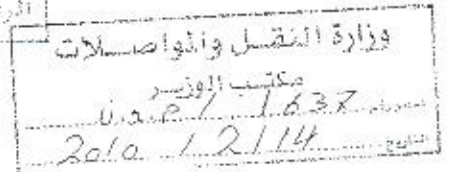 الر
وزارة النقل والمواصلات
مكتب الوزير
م.و.ن / 1637
التاريخ 2010 / 2 / 14